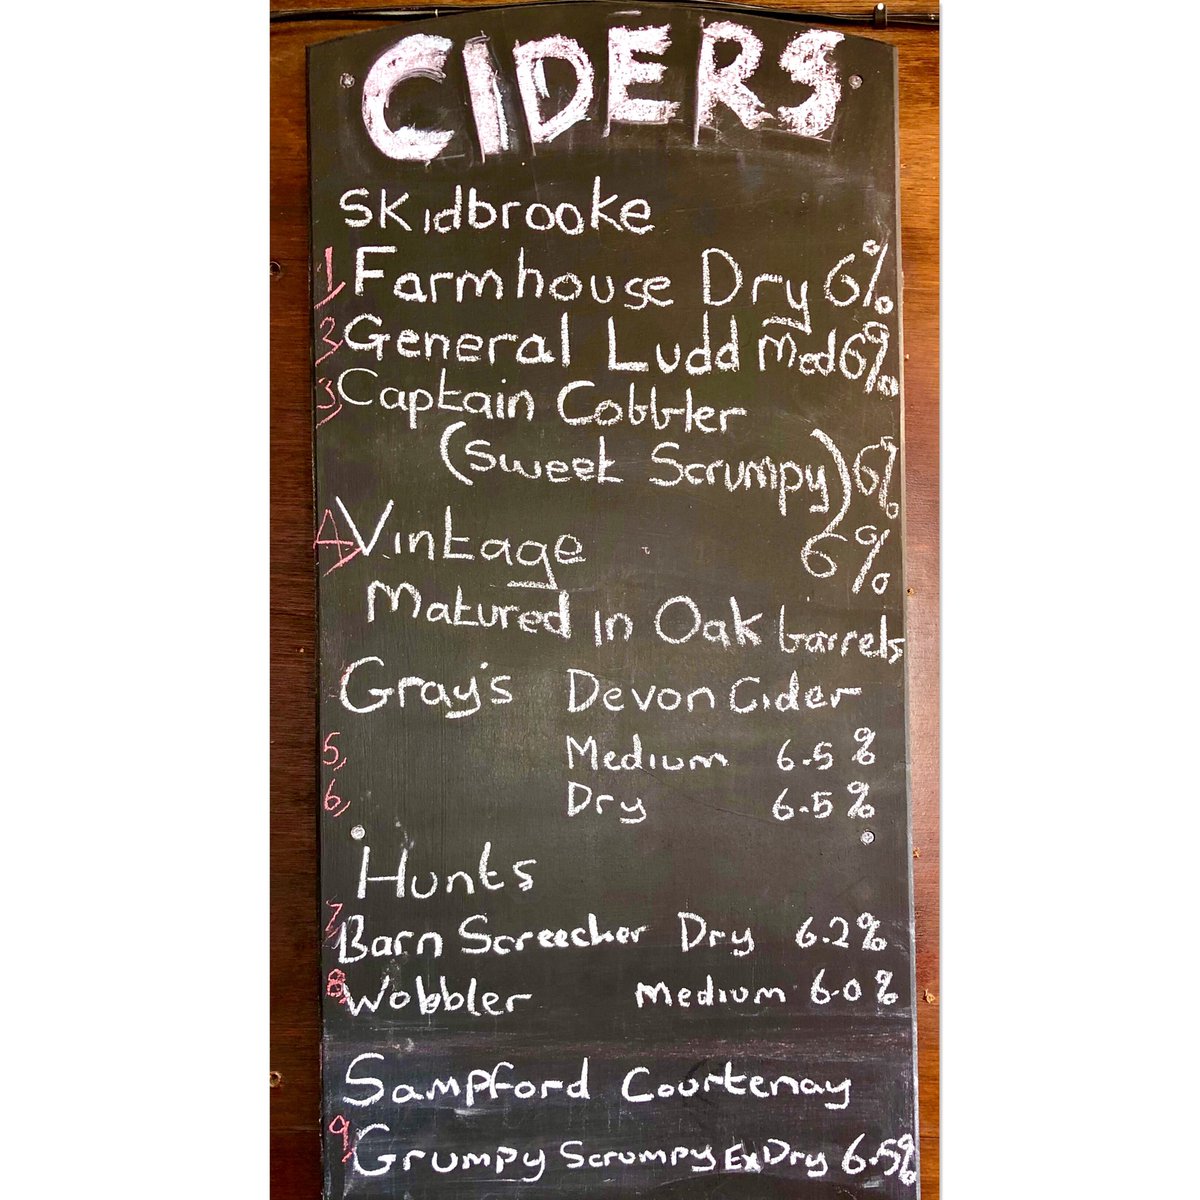 CIDERS
Skidbrooke
1, Farmhouse Dry 6%
3, General Ludd Med 6%
3, Captain Cobbler
(Sweet Scrumpy) 6%
4, Vintage 6%
Matured In Oak barrels
Gray's Devon Cider
5, Medium 6.5%
6, Dry 6.5%
Hunts
7, Barn Screecker Dry 6.2%
8, Wobbler Medium 6.0%
Sampford Courtenay
9, Grumpy Scrumpy Ex Dry 6.5%